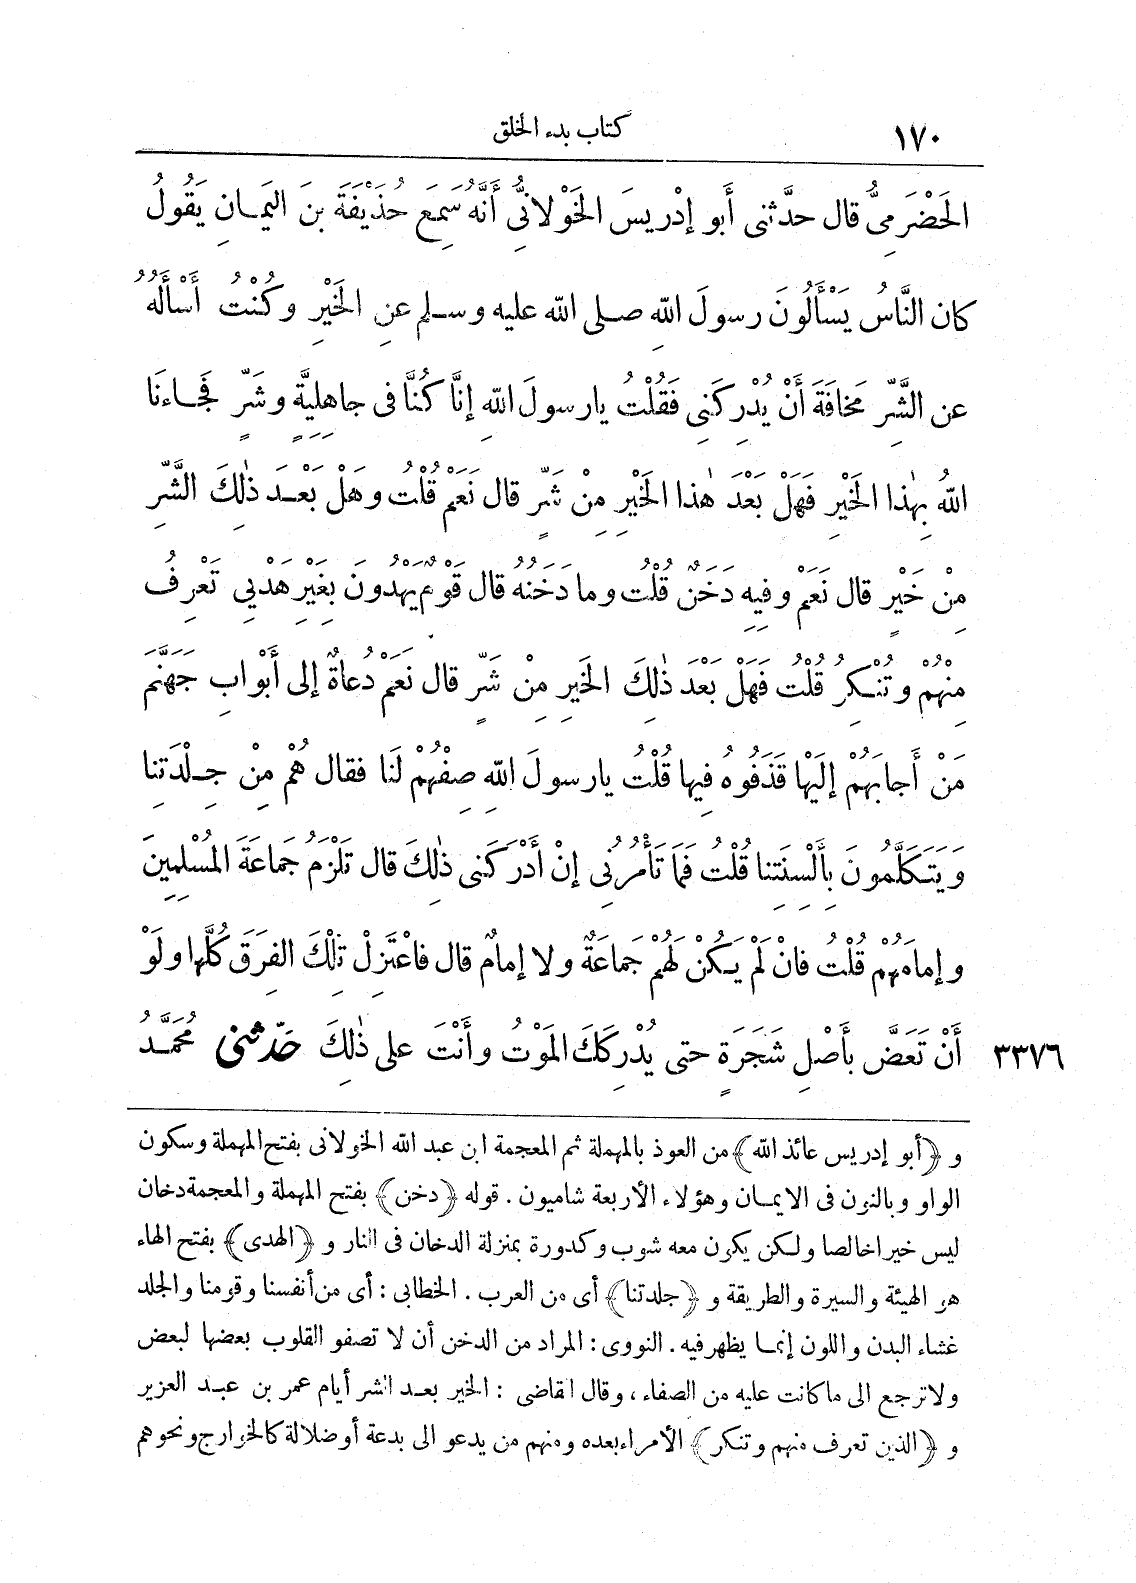 ١٧٠ كتاب بدء الخلق
الحَضْرَمِىُّ قال حدَّثنى أَبو إدْرِيسَ الخَوْلانِىُّ أَنَّهُ سَمِعَ حُذَيْفَةَ بنَ اليَمَانِ يَقُولُ
كان النَّاسُ يَسْأَلُونَ رسولَ اللهِ صلى الله عليه وسلم عنِ الخَيْرِ وكُنْتُ أَسْأَلُهُ
عن الشَّرِّ مَخافَةَ أَنْ يُدْرِكَنِى فَقُلْتُ يارسولَ اللهِ إنَّا كُنَّا فى جاهِلِيَّةٍ وشَرٍّ فَجاءَنَا
اللهُ بِهٰذا الخَيْرِ فَهَلْ بَعْدَ هٰذا الخَيْرِ مِنْ شَرٍّ قال نَعَمْ قُلْتُ وهَلْ بَعْدَ ذٰلِكَ الشَّرِّ
مِنْ خَيْرٍ قال نَعَمْ وفِيهِ دَخَنٌ قُلْتُ وما دَخَنُهُ قال قَوْمٌ يَهْدُونَ بِغَيْرِ هَدْيِى تَعْرِفُ
مِنْهُمْ وتُنْكِرُ قُلْتُ فَهَلْ بَعْدَ ذٰلِكَ الخَيرِ مِنْ شَرٍّ قال نَعَمْ دُعاةٌ إلى أَبْوابِ جَهَنَّمَ
مَنْ أَجابَهُمْ إلَيْها قَذَفُوهُ فِيها قُلْتُ يارسولَ اللهِ صِفْهُمْ لَنَا فقال هُمْ مِنْ جِلْدَتِنا
وَيَتَكَلَّمُونَ بِأَلْسِنَتِنا قُلْتُ فَمَا تَأْمُرُنِى إنْ أَدْرَكَنِى ذٰلِكَ قال تَلْزَمُ جَمَاعَةَ المُسْلِمِينَ
وإمامَهُمْ قُلْتُ فانْ لَمْ يَكُنْ لَهُمْ جَمَاعَةٌ ولا إمامٌ قال فاعْتَزِلْ تِلْكَ الفِرَقَ كُلَّها ولَوْ
٣٣٧٦ أَنْ تَعَضَّ بأَصْلِ شَجَرَةٍ حتى يُدْرِكَكَ المَوْتُ وأَنْتَ على ذٰلِكَ حَدّثنى مُحَمَّدُ
و ﴿أبو إدريس عائذ الله﴾ من العوذ بالمهملة ثم المعجمة ابن عبد الله الخولانى بفتح المهملة وسكون
الواو وبالنون فى الايمان وهؤلاء الأربعة شاميون . قوله ﴿دخن﴾ بفتح المهملة والمعجمة دخان
ليس خيرا خالصا ولكن يكون معه شوب وكدورة بمنزلة الدخان فى النار و ﴿الهدى﴾ بفتح الهاء
هو الهيئة والسيرة والطريقة و ﴿جلدتنا﴾ أى من العرب . الخطابى : أى من أنفسنا وقومنا والجلد
غشاء البدن واللون إنما يظهر فيه . النووى : المراد من الدخن أن لا تصفو القلوب بعضها لبعض
ولا ترجع الى ما كانت عليه من الصفاء ، وقال القاضى : الخير بعد الشر أيام عمر بن عبد العزيز
و ﴿الذين تعرف منهم وتنكر﴾ الأمراء بعده ومنهم من يدعو الى بدعة أو ضلالة كالخوارج ونحوهم